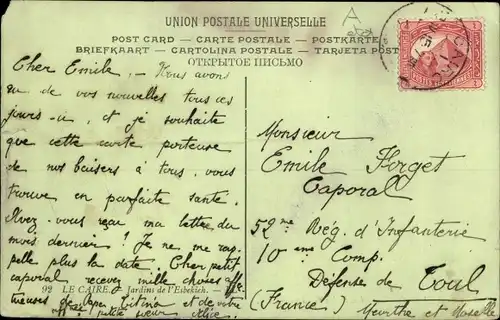 UNION POSTALE UNIVERSELLE
POST CARD — CARTE POSTALE — POSTKARTE
BRIEFKAART — CARTOLINA POSTALE — TARJETA POST
ОТКРЫТОЕ ПИСЬМО
Cher Emile, - Nous avons
eu de vos nouvelles tous ces
jours-ci, et je souhaite
que cette carte porteuse
de nos baisers à tous, vous
trouve en parfaite santé.
Avez-vous reçu ma lettre du
mois dernier? Je ne me rap-
pelle plus la date. Cher petit
caporal recevez mille choses affec-
tueuses de et de votre
petite sœur Alice.
92 LE CAIRE. Jardins de l'Esbekieh.
Monsieur
Emile Forget
Caporal
52ne Rég. d'Infanterie
10ème Comp.
Défense de Toul
(France) Meurthe et Moselle